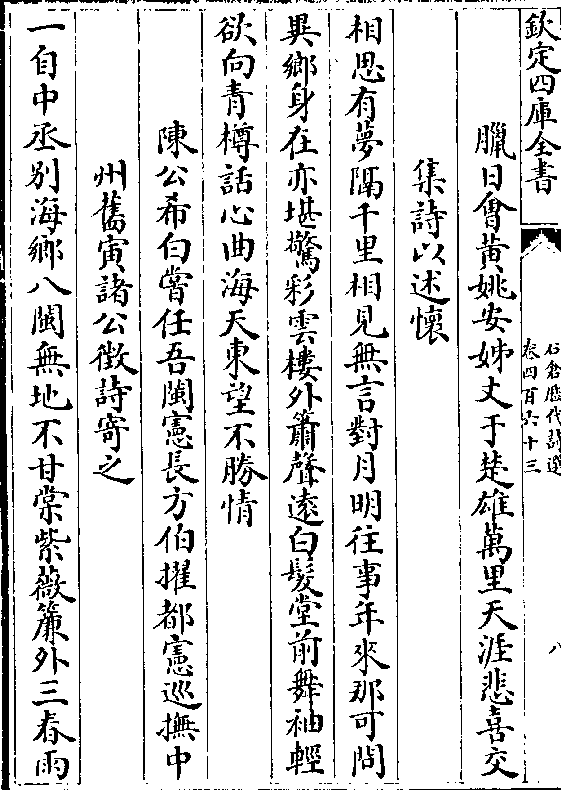 欽定四庫全書
石倉歷代詩選
卷四百六十三
八
臘日會黃姚安姊丈于楚雄萬里天涯悲喜交
集詩以述懷
相思有夢隔千里相見無言對月明往事年來那可問
異鄉身在亦堪驚彩雲樓外簫聲遠白髮堂前舞袖輕
欲向青樽話心曲海天東望不勝情
陳公希白嘗任吾閩憲長方伯擢都憲巡撫中
州舊寅諸公徴詩寄之
一自中丞別海鄉八閩無地不甘棠紫薇簾外三春雨